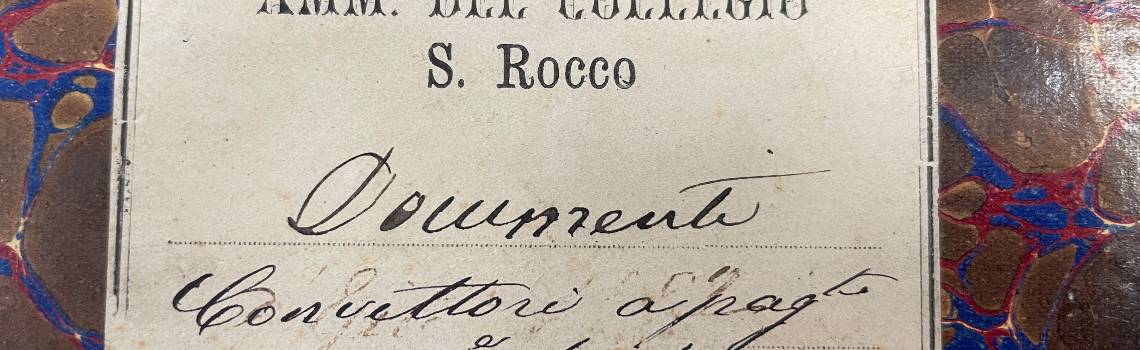 AMM. DEL COLLEGIO
S. Rocco
Documenti
Convittori a pagto